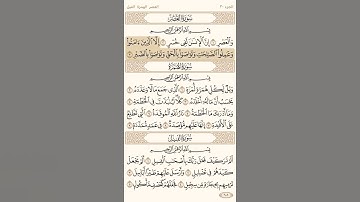 الجزء ٣٠ العصر الهمزة الفيل
سورة العصر
بسم الله الرحمن الرحيم
والعصر ١ إن الإنسان لفي خسر ٢ إلا الذين ءامنوا
وعملوا الصالحات وتواصوا بالحق وتواصوا بالصبر ٣
سورة الهمزة
بسم الله الرحمن الرحيم
ويل لكل همزة لمزة ١ الذي جمع مالا وعدده ٢
يحسب أن ماله أخلده ٣ كلا لينبذن في الحطمة ٤
وما أدراك ما الحطمة ٥ نار الله الموقدة ٦ التي تطلع
على الأفئدة ٧ إنها عليهم مؤصدة ٨ في عمد ممددة ٩
سورة الفيل
بسم الله الرحمن الرحيم
ألم تر كيف فعل ربك بأصحاب الفيل ١ ألم يجعل
كيدهم في تضليل ٢ وأرسل عليهم طيرا أبابيل ٣
ترميهم بحجارة من سجيل ٤ فجعلهم كعصف مأكول ٥